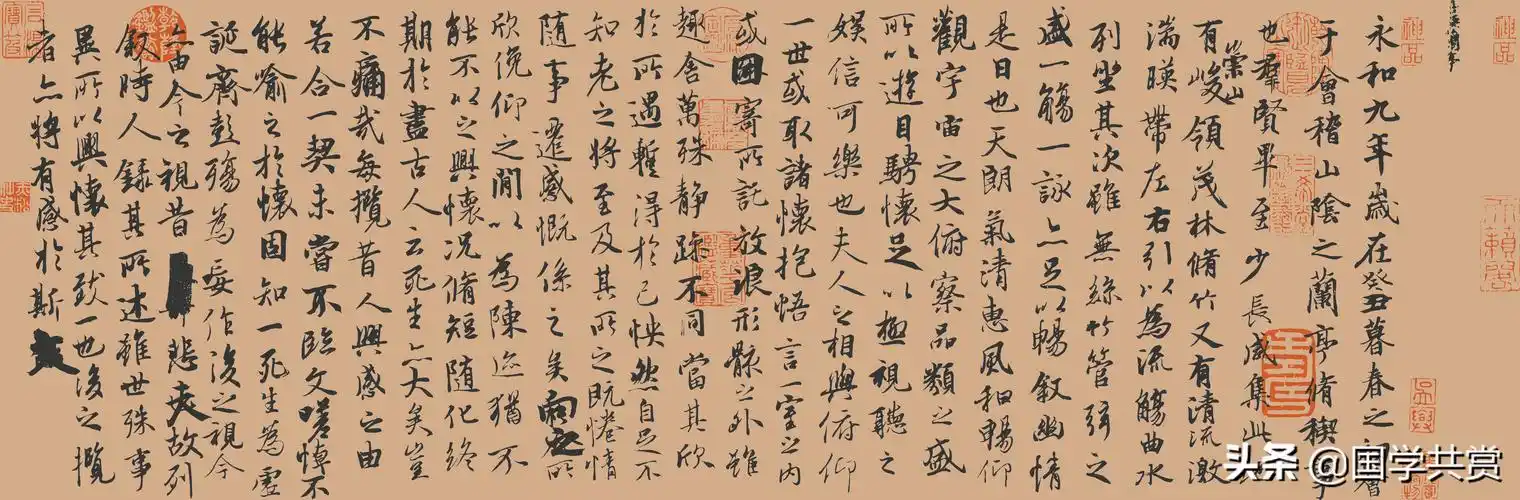 永和九年歲在癸丑暮春之初會
于會稽山陰之蘭亭脩稧事
也羣賢畢至少長咸集此地
有崇山峻領茂林脩竹又有清流激
湍暎帶左右引以為流觴曲水
列坐其次雖無絲竹管弦之
盛一觴一詠亦足以暢叙幽情
是日也天朗氣清惠風和暢仰
觀宇宙之大俯察品類之盛
所以遊目騁懷足以極視聽之
娛信可樂也夫人之相與俯仰
一世或取諸懷抱悟言一室之內
或因寄所託放浪形骸之外雖
趣舍萬殊静躁不同當其欣
於所遇暫得於己怏然自足不
知老之將至及其所之既惓情
隨事遷感慨係之矣向之所
欣俛仰之閒以為陳迹猶不
能不以之興懷况脩短隨化終
期於盡古人云死生亦大矣豈
不痛哉每攬昔人興感之由
若合一契未嘗不臨文嗟悼不
能喻之於懷固知一死生為虛
誕齊彭殤為妄作後之視今
亦由今之視昔悲夫故列
叙時人錄其所述雖世殊事
異所以興懷其致一也後之攬
者亦將有感於斯文
神品
头条 @国学共赏